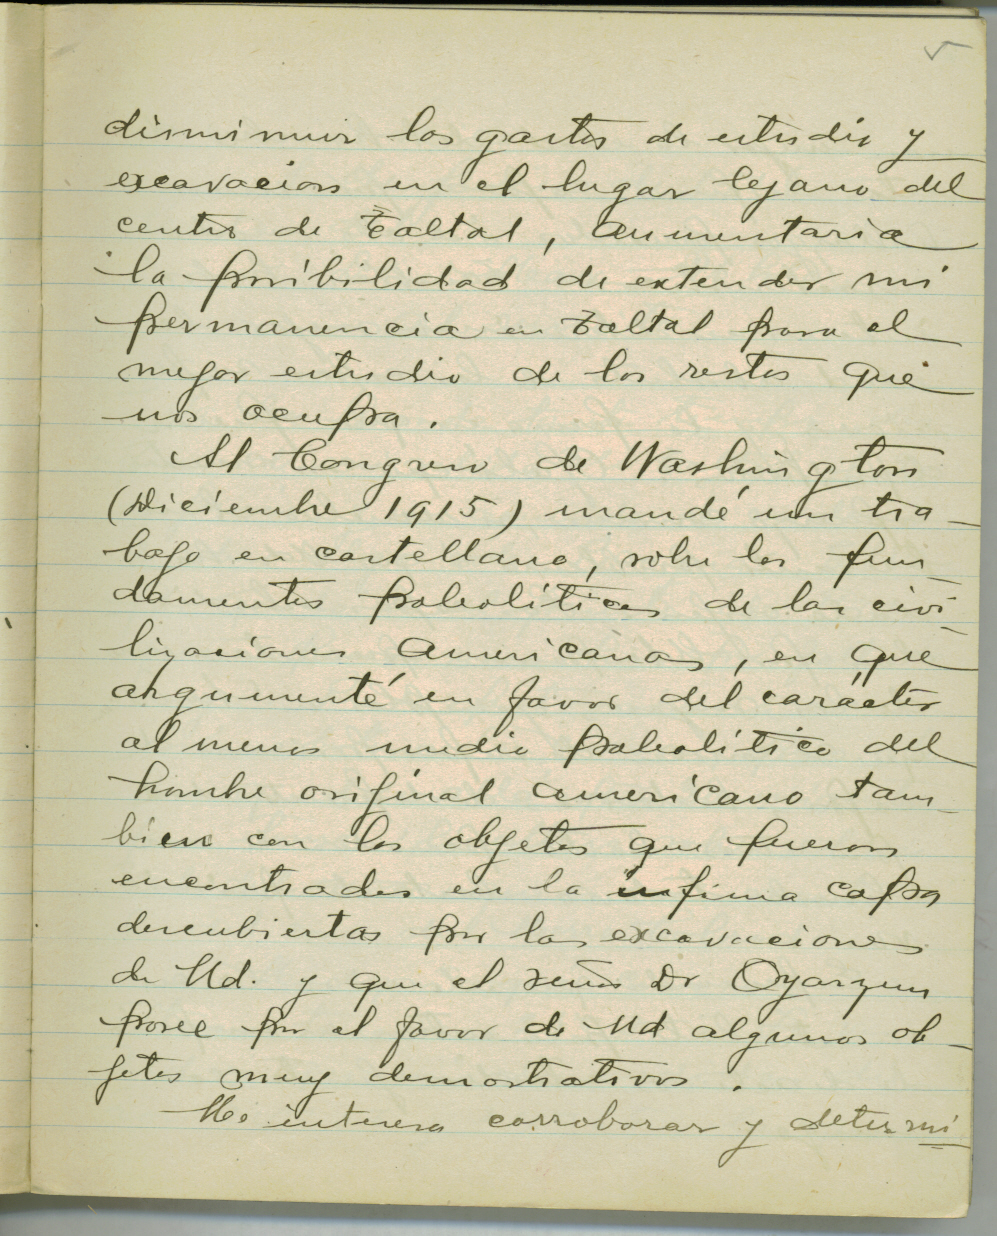 disminuir los gastos de estudio y
excavacion en el lugar lejano del
centro de Taltal, aumentaria
la posibilidad de extender mi
permanencia en Taltal para el
mejor estudio de los restos que
nos ocupa.
Al Congreso de Washington
(Diciembre 1915) mandé un tra-
bajo en castellano, sobre los fun-
damentos paleolíticos de las civi-
lizaciones Americanas, en que
argumenté en favor del carácter
al menos medio paleolitico del
hombre original americano tam-
bien con los objetos que fueron
encontrados en la infima capa
descubiertas por las excavaciones
de Ud. y que el señor Dr Oyarzun
posee por el favor de Ud algunos ob-
jetos muy demostrativos.
Me interesa corroborar y determi